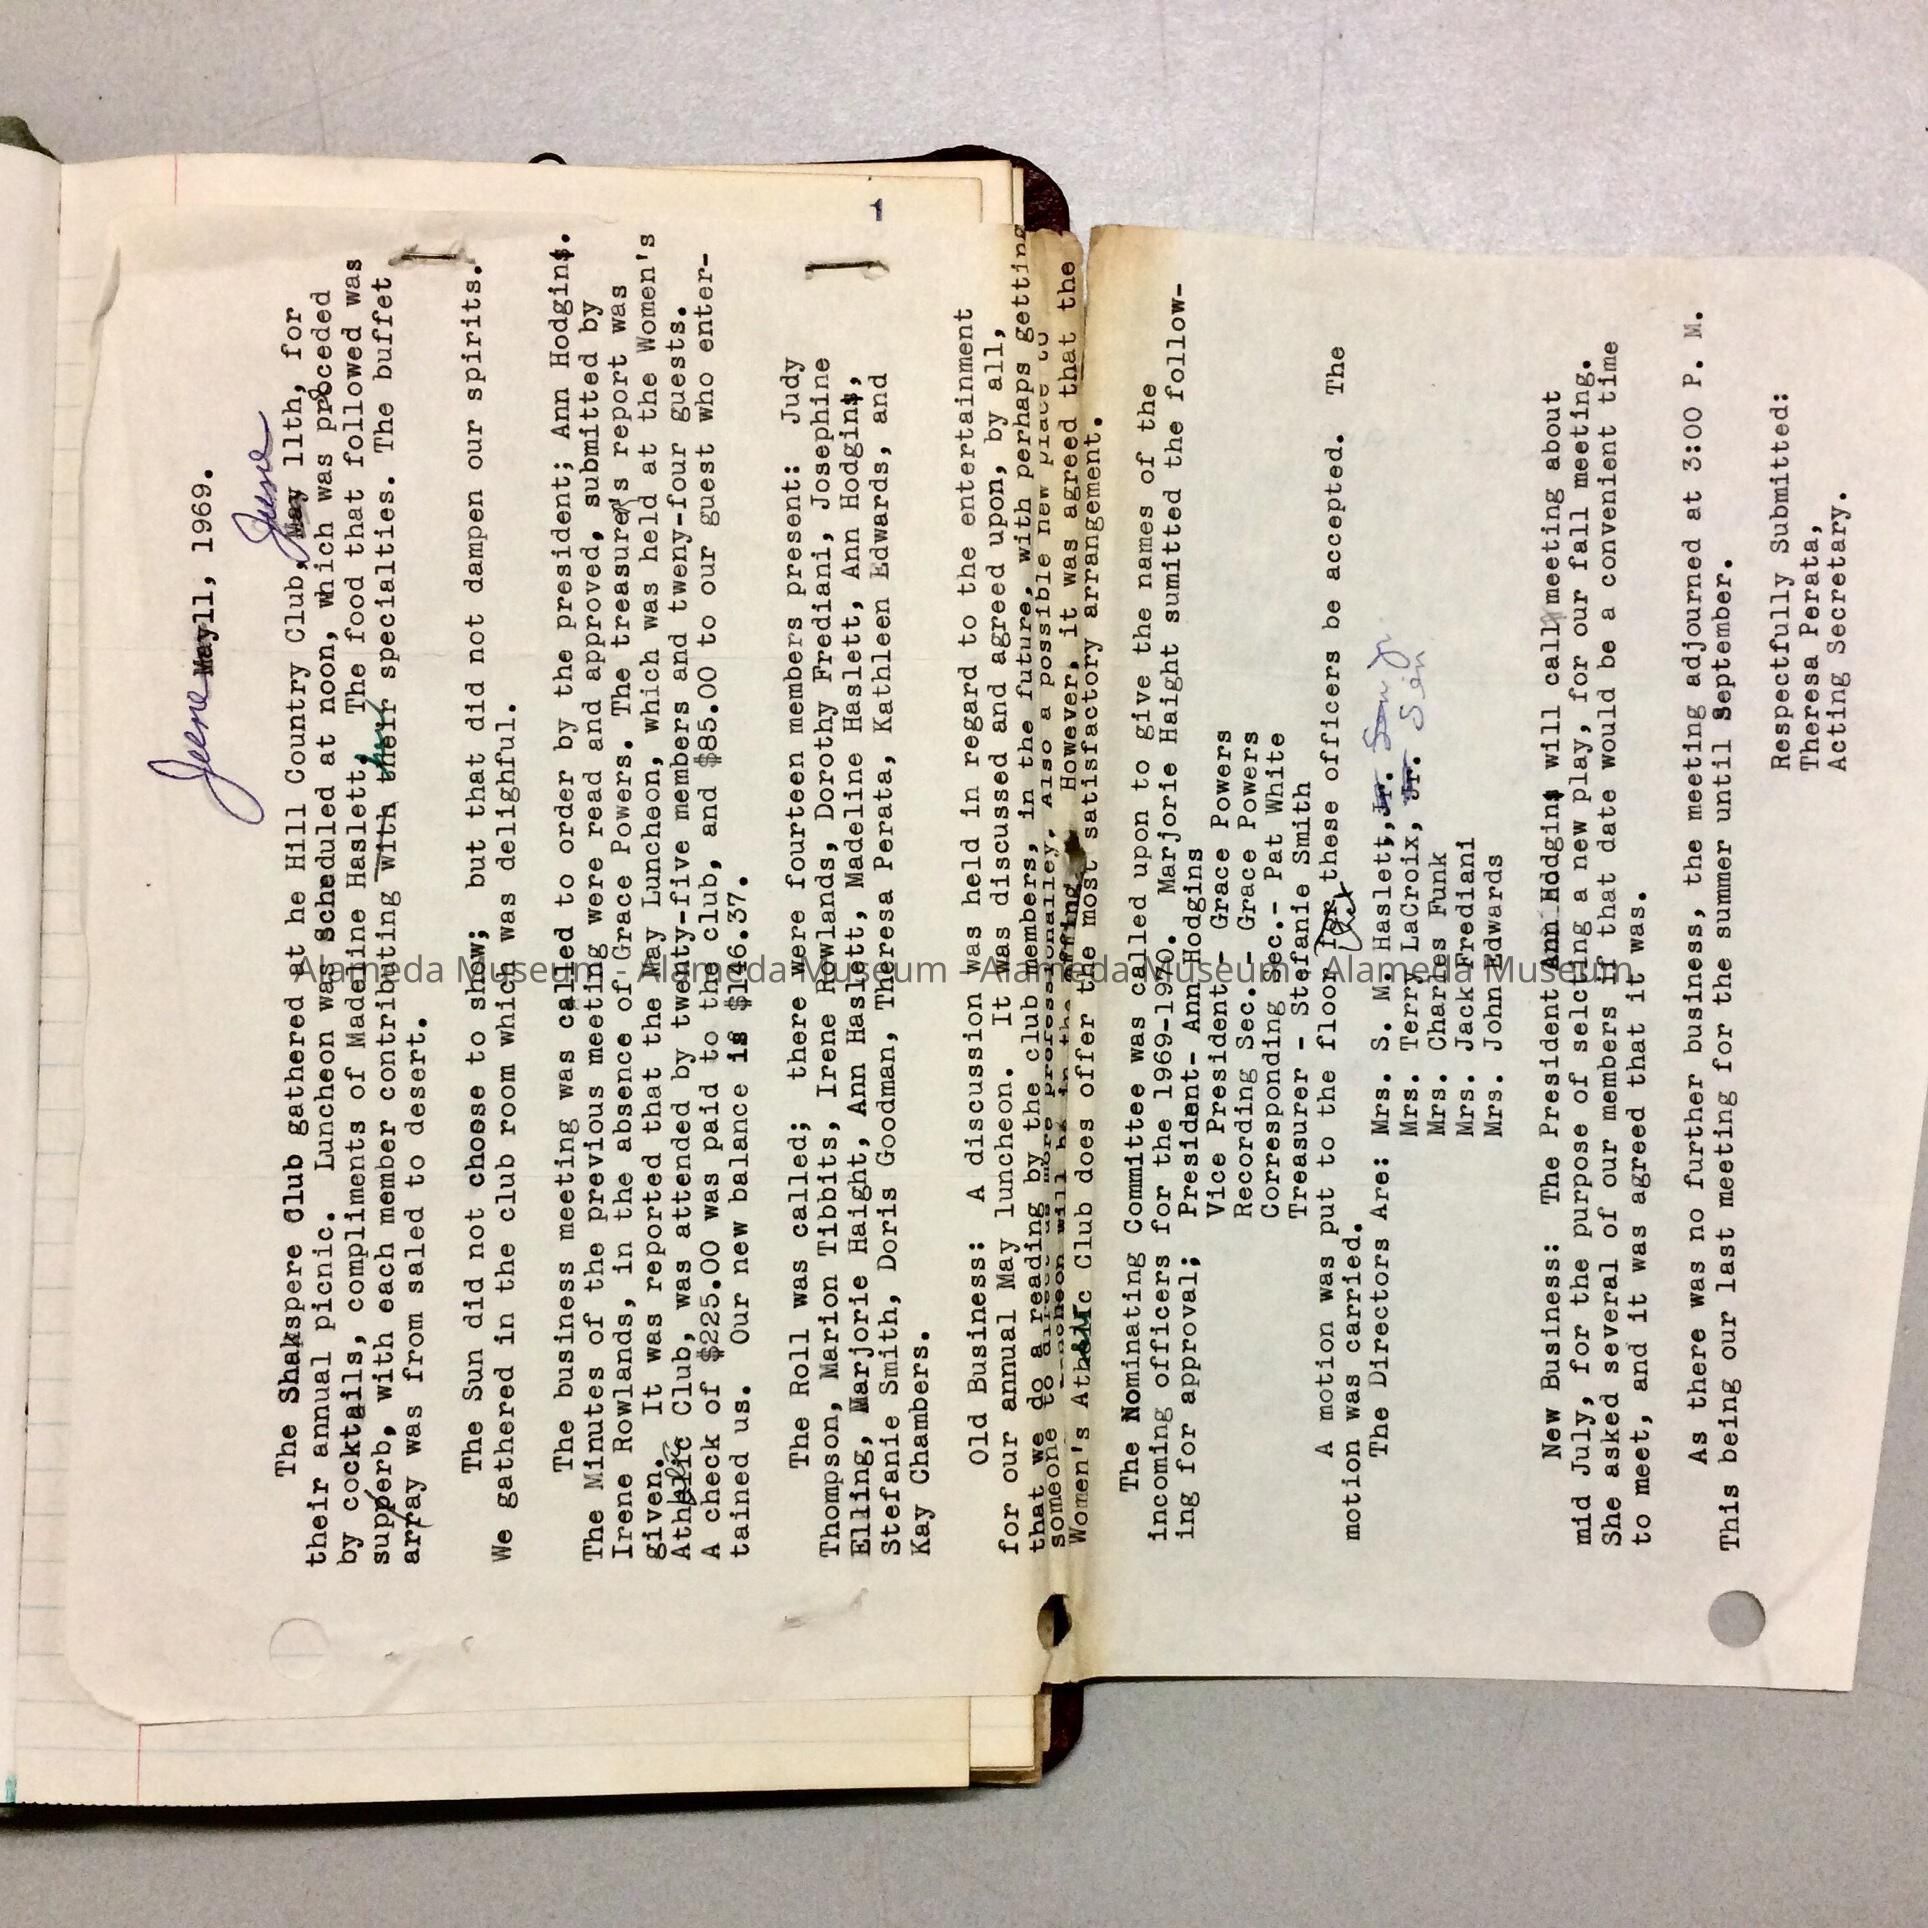 June Mayll, 1969.
June
The Shakspere Club gathered at he Hill Country Club, May 11th, for
their annual picnic. Luncheon was Scheduled at noon, which was proceded
by cocktails, compliments of Madeline Haslett. The food that followed was
supperb, with each member contributing with their her specialties. The buffet
array was from saled to desert.
The Sun did not choose to show; but that did not dampen our spirits.
We gathered in the club room which was delighful.
The business meeting was called to order by the president; Ann Hodgins.
The Minutes of the previous meeting were read and approved, submitted by
Irene Rowlands, in the absence of Grace Powers. The treasurer's report was
given. It was reported that the May Luncheon, which was held at the Women's
Athletic Club, was attended by twenty-five members and tweny-four guests.
A check of $225.00 was paid to the club, and $85.00 to our guest who enter-
tained us. Our new balance is $146.37.
The Roll was called; there were fourteen members present: Judy
Thompson, Marion Tibbits, Irene Rowlands, Dorothy Frediani, Josephine
Elling, Marjorie Haight, Ann Haslett, Madeline Haslett, Ann Hodgins,
Stefanie Smith, Doris Goodman, Theresa Perata, Kathleen Edwards, and
Kay Chambers.
Old Business: A discussion was held in regard to the entertainment
for our annual May luncheon. It was discussed and agreed upon, by all,
that we do a reading by the club members, in the future, with perhaps getting
someone to direct us more professionalley. Also a possible new place to
luncheon will be in the offing. However, it was agreed that the
Women's Athletic Club does offer the most satisfactory arrangement.
The Nominating Committee was called upon to give the names of the
incoming officers for the 1969-1970. Marjorie Haight sumitted the follow-
ing for approval; President- Ann Hodgins
Vice President - Grace Powers
Recording Sec.- Grace Powers
Corresponding Sec.- Pat White
Treasurer - Stefanie Smith
A motion was put to the floor for that these officers be accepted. The
motion was carried.
The Directors Are: Mrs. S. M. Haslett, Jr. Sen Jr
Mrs. Terry LaCroix, Jr. Sen
Mrs. Charles Funk
Mrs. Jack Frediani
Mrs. John Edwards
New Business: The President Ann Hodgins will call meeting about
mid July, for the purpose of selcting a new play, for our fall meeting.
She asked several of our members if that date would be a convenient time
to meet, and it was agreed that it was.
As there was no further business, the meeting adjourned at 3:00 P. M.
This being our last meeting for the summer until September.
Respectfully Submitted:
Theresa Perata,
Acting Secretary.
Alameda Museum - Alameda Museum - Alameda Museum - Alameda Museum